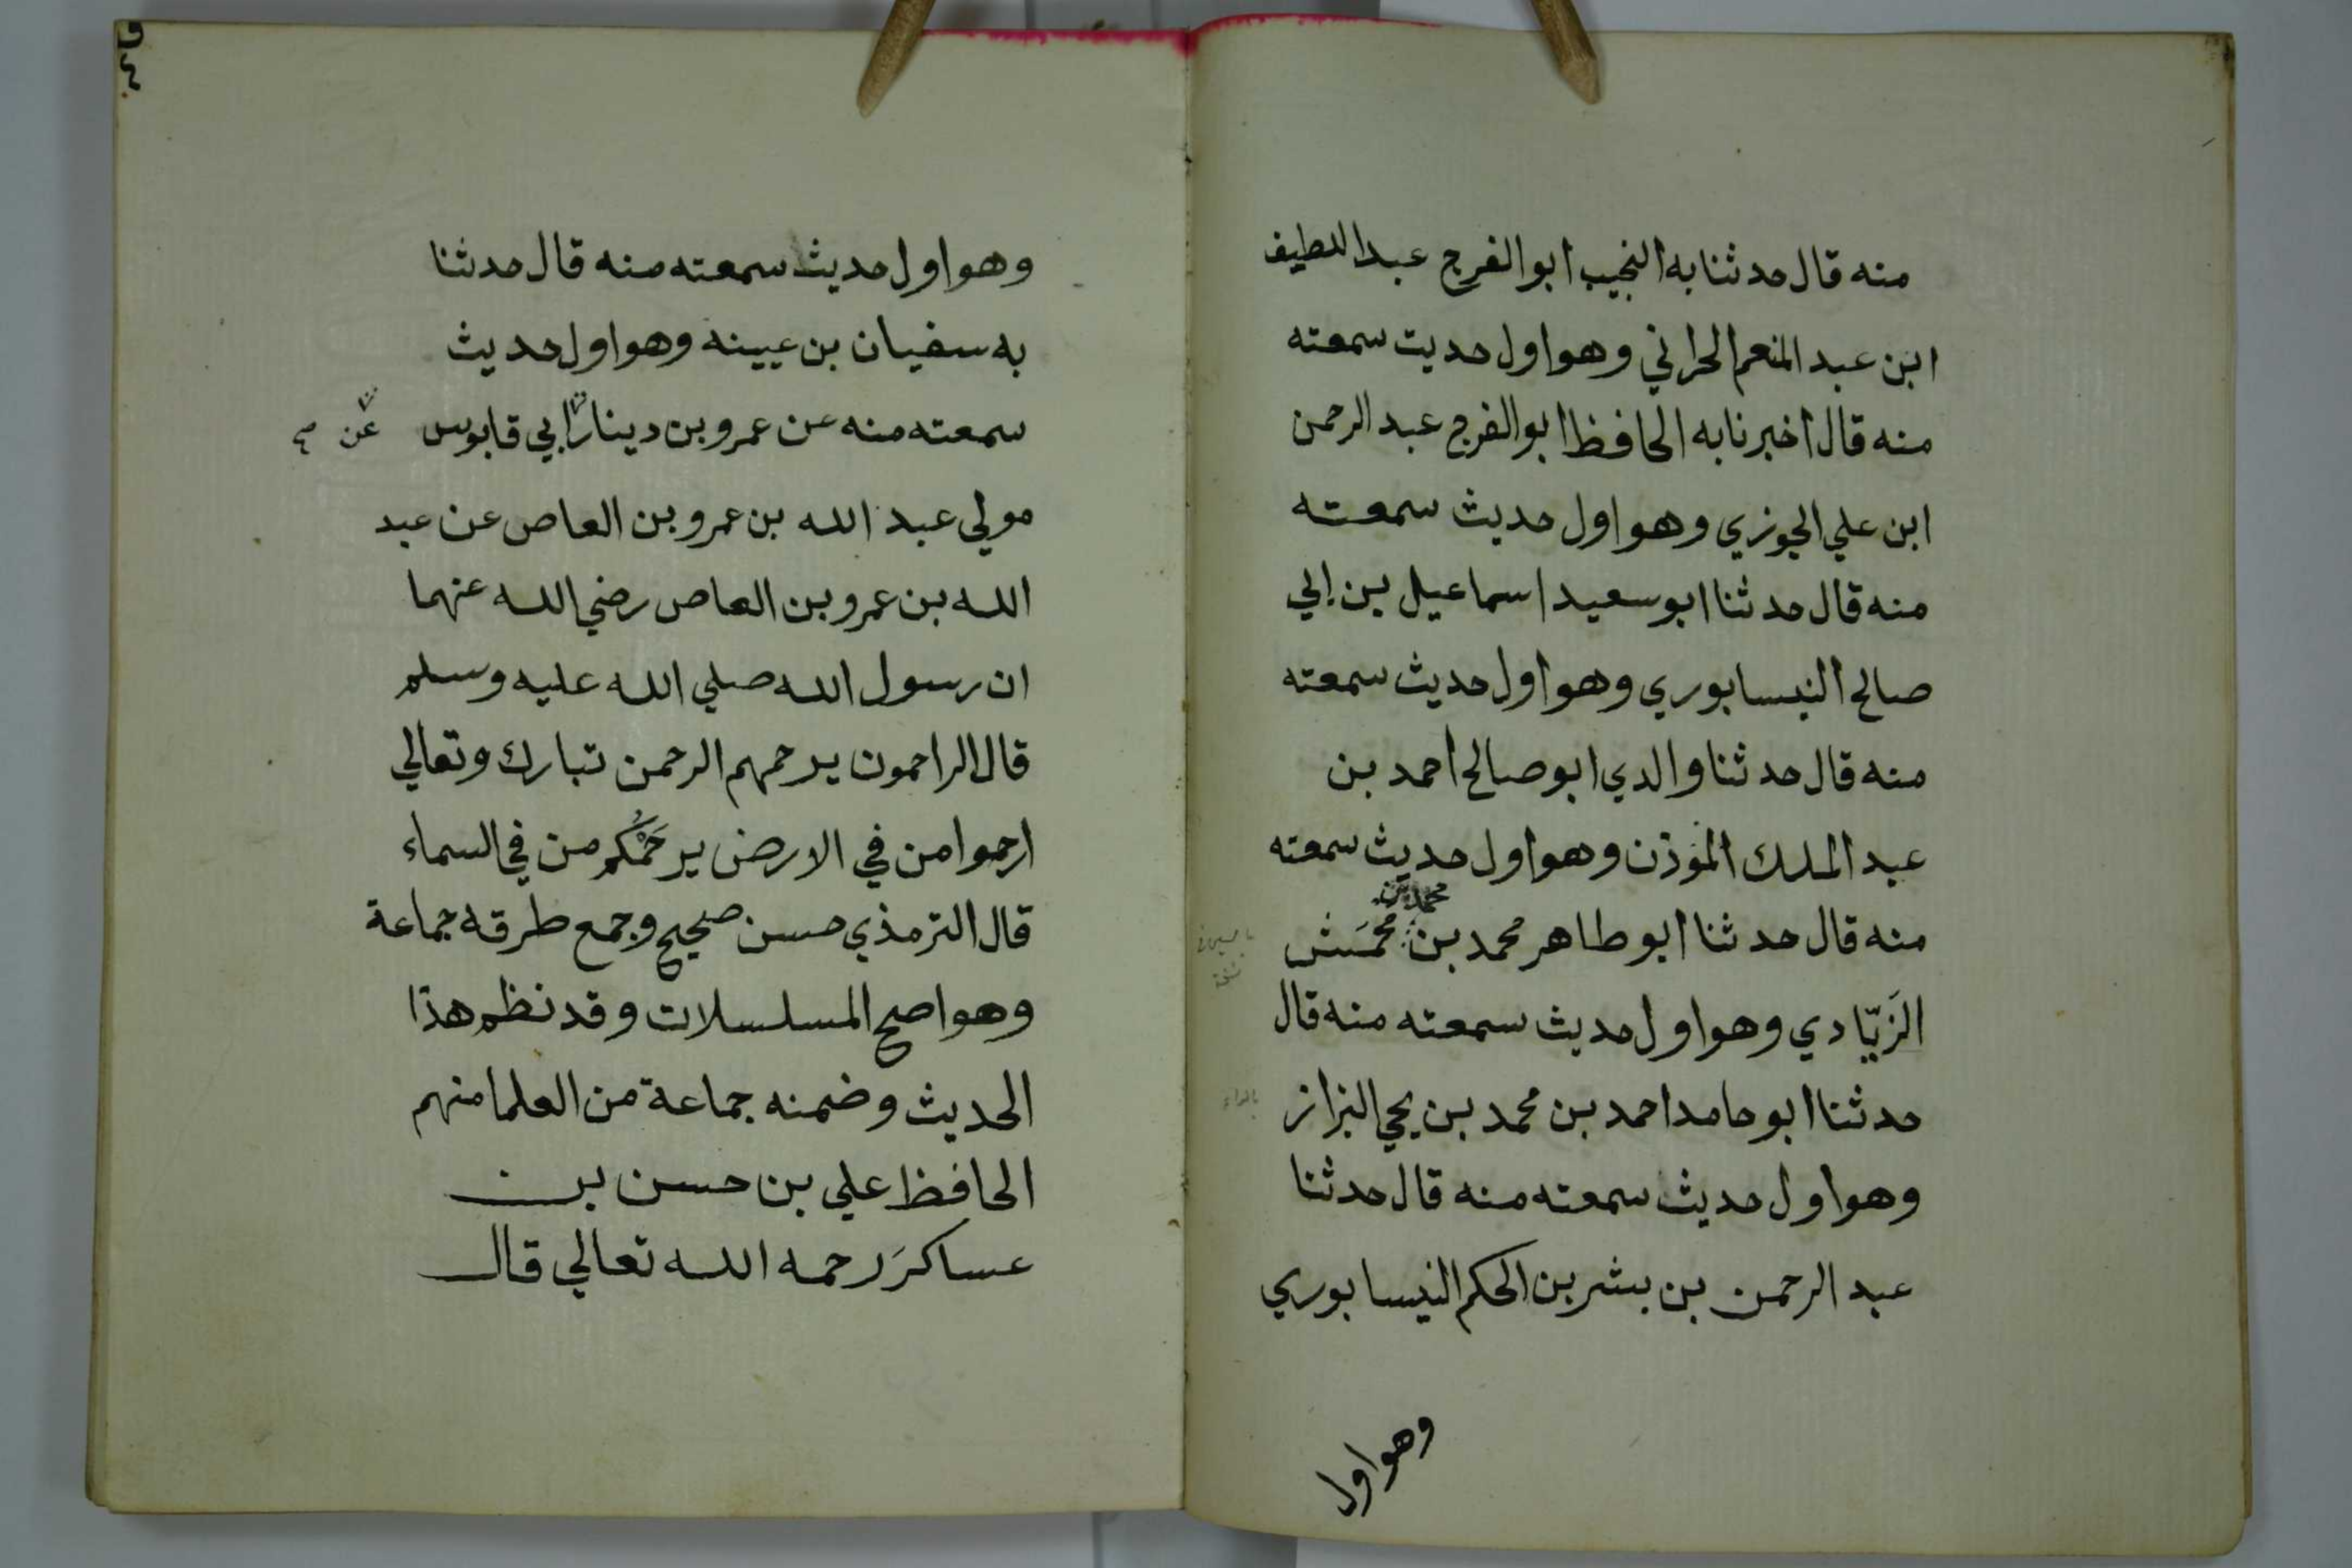 منه قال حدثنا به النجيب ابو الفرج عبد اللطيف
ابن عبد المنعم الحراني وهو اول حديث سمعته
منه قال اخبرنا به الحافظ ابو الفرج عبد الرحمن
ابن علي الجوزي وهو اول حديث سمعته
منه قال حدثنا ابو سعيد اسماعيل بن ابي
صالح النيسابوري وهو اول حديث سمعته
منه قال حدثنا والدي ابو صالح احمد بن
عبد الملك المؤذن وهو اول حديث سمعته
محمد بن
منه قال حدثنا ابو طاهر محمد بن محمَش
الزَيّادي وهو اول حديث سمعته منه قال
حدثنا ابو حامد احمد بن محمد بن يحي البزاز
وهو اول حديث سمعته منه قال حدثنا
عبد الرحمن بن بشر بن الحكم النيسابوري
وهو اول
وهو اول حديث سمعته منه قال حدثنا
به سفيان بن عيينه وهو اول حديث
سمعته منه عن عمرو بن دينار ابي قابوس
عن صح
مولي عبد الله بن عمرو بن العاص عن عبد
الله بن عمرو بن العاص رضي الله عنهما
ان رسول الله صلي الله عليه وسلم
قال الراحمون يرحمهم الرحمن تبارك وتعالي
ارحموا من في الارض يرحَمْكُم من في السماء
قال الترمذي حسن صحيح وجمع طرقه جماعة
وهو اصح المسلسلات وقد نظم هذا
الحديث وضمنه جماعة من العلما منهم
الحافظ علي بن حسن بن
عساكرَ رحمه الله تعالي قال